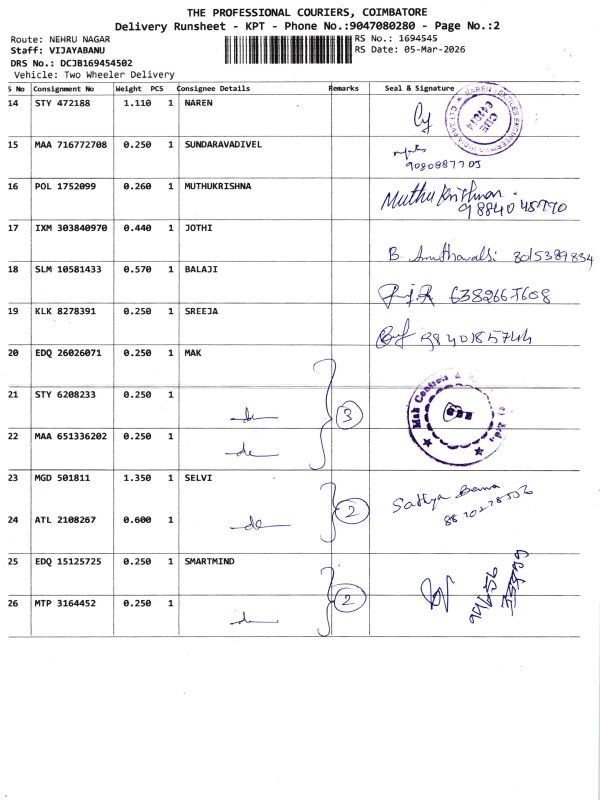 THE PROFESSIONAL COURIERS, COIMBATORE
Delivery Runsheet - KPT - Phone No.:9047080280 - Page No.:2
Route: NEHRU NAGAR
RS No.: 1694545
Staff: VIJAYABANU
RS Date: 05-Mar-2026
DRS No.: DCJB169454502
Vehicle: Two Wheeler Delivery
S No Consignment No Weight PCS Consignee Details Remarks Seal & Signature
14 STY 472188 1.110 1 NAREN
15 MAA 716772708 0.250 1 SUNDARAVADIVEL
9080887705
16 POL 1752099 0.260 1 MUTHUKRISHNA Muthu Krishnan.
9884045770
17 IXM 303840970 0.440 1 JOTHI
B. Amuthavalli 8015389834
18 SLM 10581433 0.570 1 BALAJI
6382665608
19 KLK 8278391 0.250 1 SREEJA
9840185744
20 EDQ 26026071 0.250 1 MAK
21 STY 6208233 0.250 1
do 3
22 MAA 651336202 0.250 1
do
23 MGD 501811 1.350 1 SELVI
Sathya Bama
24 ATL 2108267 0.600 1 do 2
25 EDQ 15125725 0.250 1 SMARTMIND
26 MTP 3164452 0.250 1 2
do